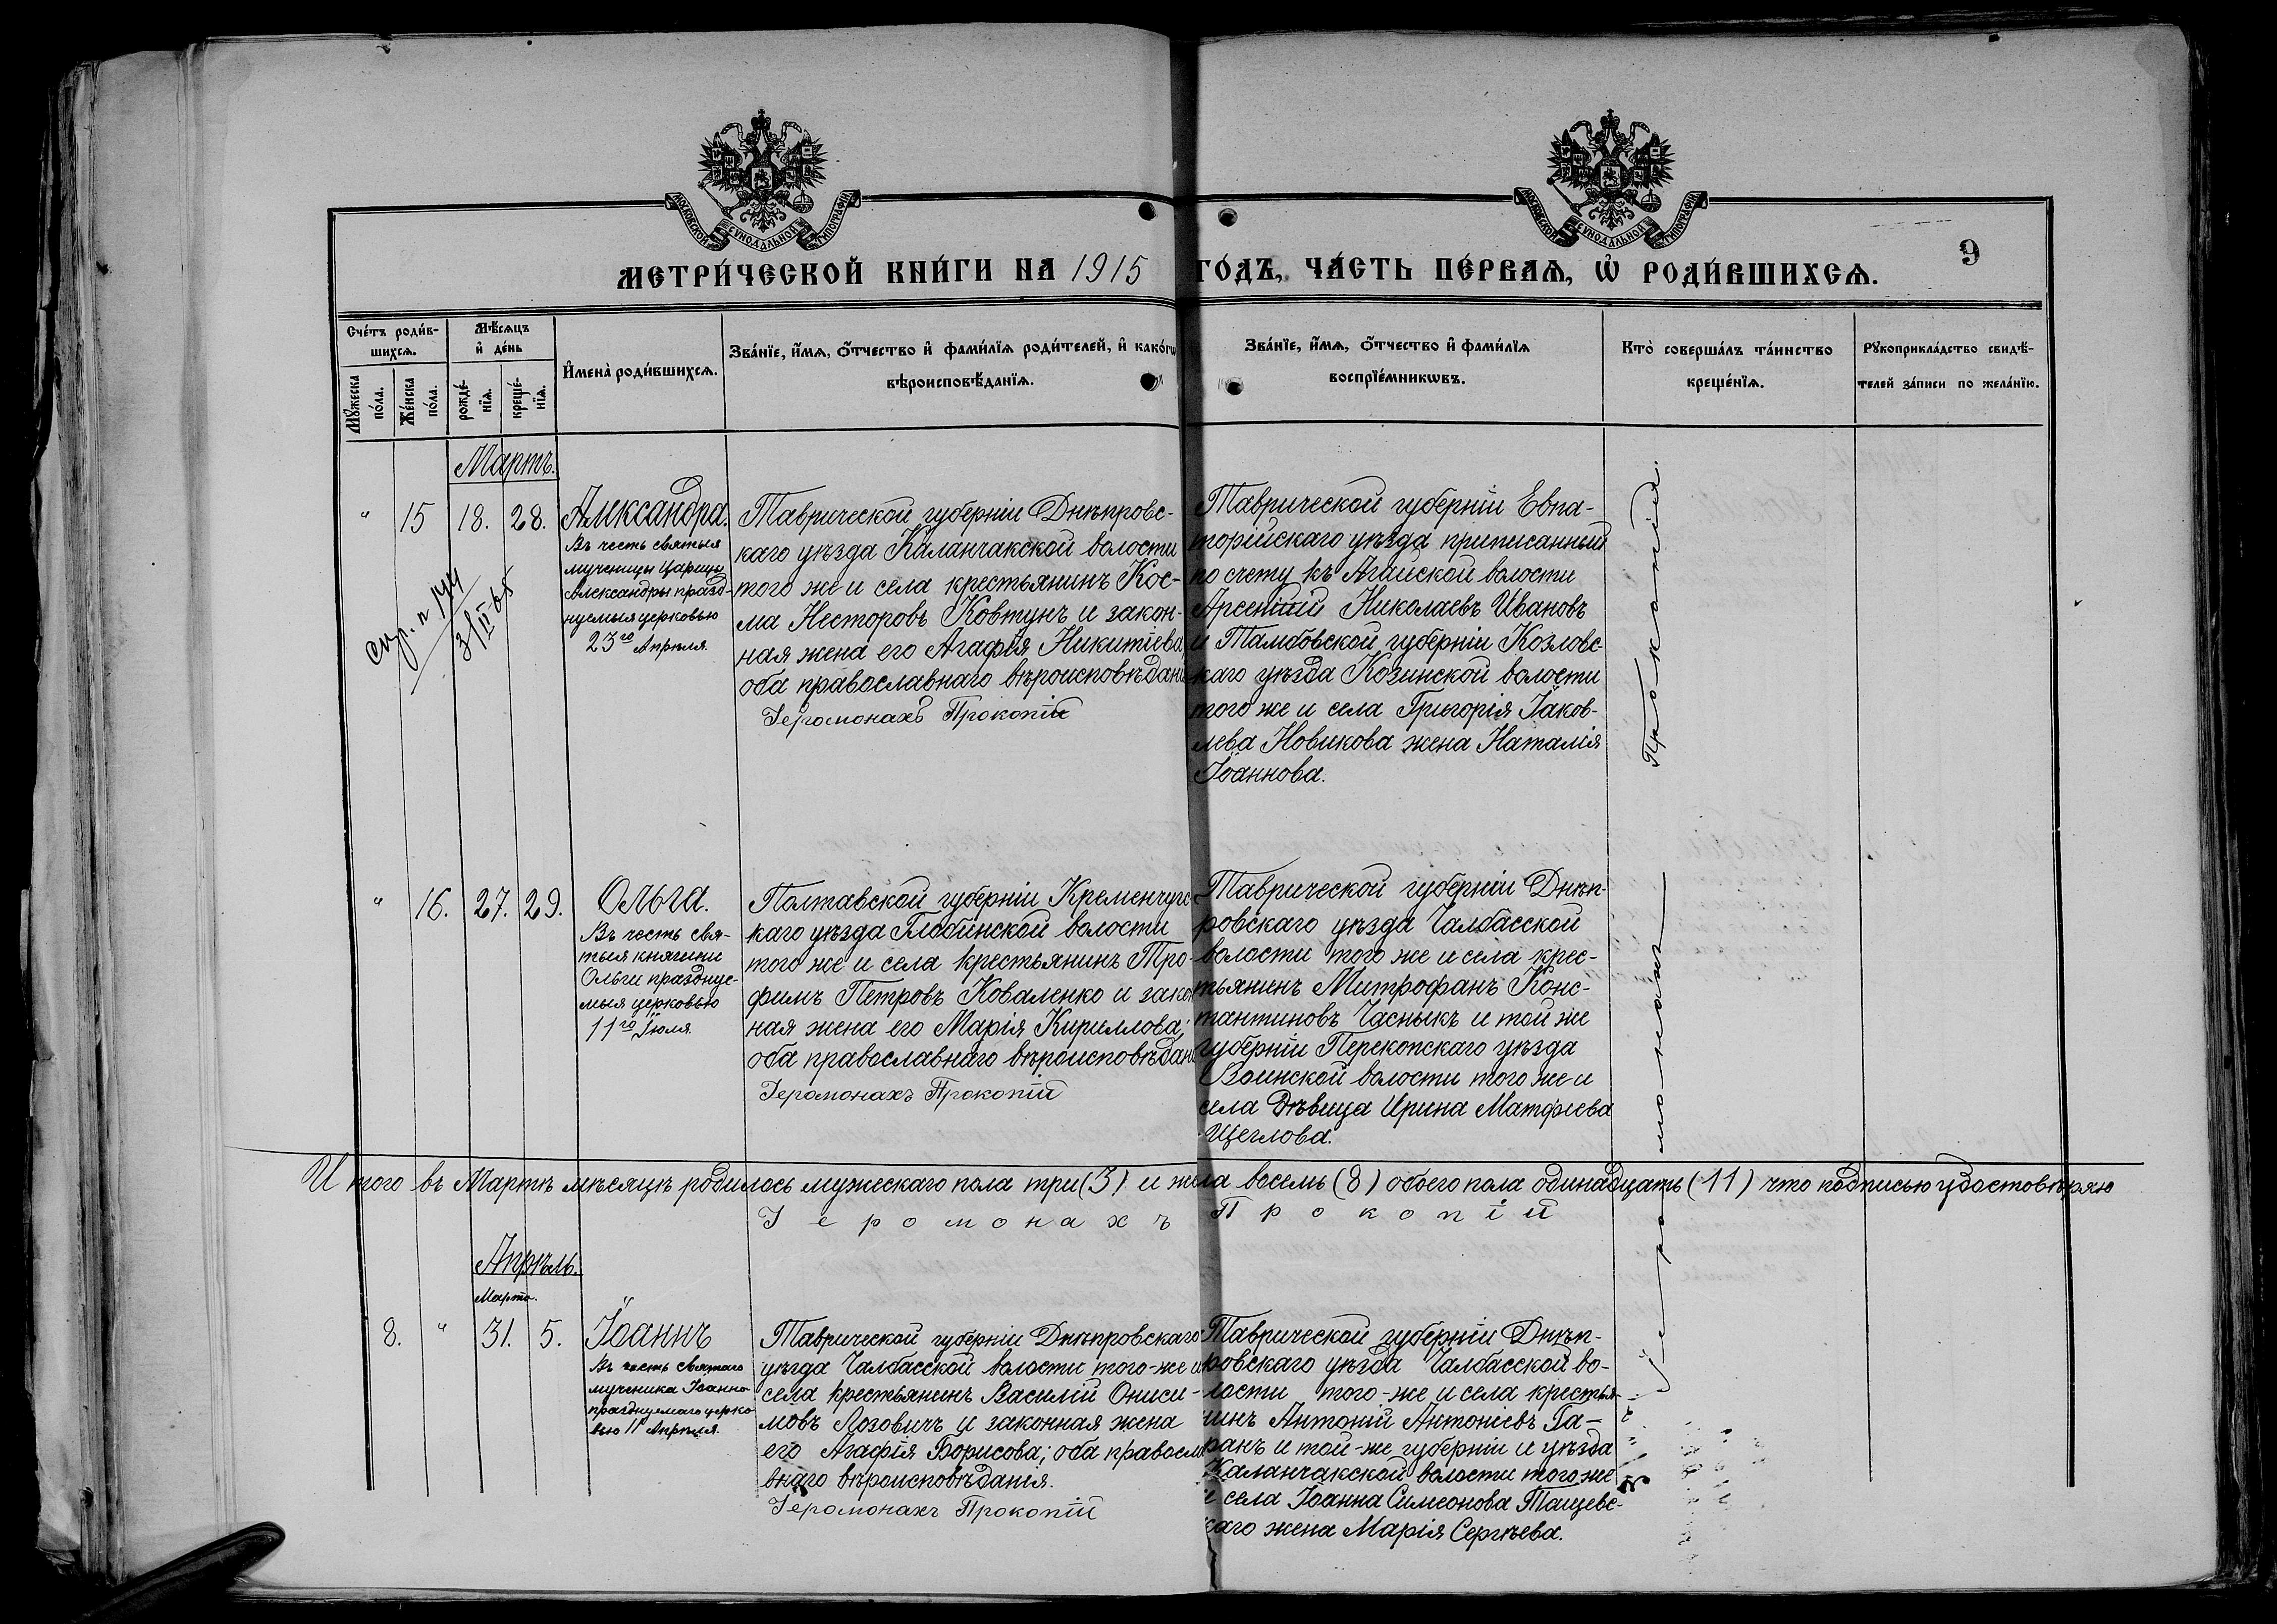 МОСКОВСКОЙ СѴНОДАЛЬНОЙ ТИПОГРАФІИ
МОСКОВСКОЙ СѴНОДАЛЬНОЙ ТИПОГРАФІИ
9
МЕТРИ́ЧЕСКОЙ КНИ́ГИ НА 1915 ГО́ДЪ, ЧА́СТЬ ПЕ́РВАѦ, Ѡ҆ РОДИ́ВШИХСѦ.
Сче́тъ роди́в-
шихсѧ.
Мꙋ́жеска
по́ла.
Же́нска
по́ла.
Мѣ́сѧцъ
и҆ де́нь
рожде́-
нїѧ.
креще́-
нїѧ.
И҆мена̀ роди́вшихсѧ.
Зва́нїе, и҆́мѧ, ѻ҆́тчество и҆ фами́лїѧ роди́телей, и҆ како́гѡ
вѣроисповѣ́данїѧ.
Зва́нїе, и҆́мѧ, ѻ҆́тчество и҆ фами́лїѧ
воспрїе́мникѡвъ.
Кто̀ соверша́лъ та́инство
креще́нїѧ.
Рꙋкоприкла́дство свидѣ́-
телей за́писи по жела́нїю.
Мартъ.
" 15 18. 28.
Александра.
Въ честь святыя
мученицы Царицы
Александры празд-
нуемыя церковью
23го Апрѣля
Таврической губерніи Днѣпровс-
каго уѣзда Каланчакской волости
того же и села крестьянинъ Кос-
ма Несторовъ Ковтунъ и закон-
ная жена его Агафія Никитіева
оба православнаго вѣроисповѣдані
Іеромонахъ Прокопій
Таврической губерніи Евпа-
торійскаго уѣзда приписанный
по счету къ Агайской волости
Арсеній Николаевъ Ивановъ
и Тамбовской губерніи Козловс-
каго уѣзда Козинской волости
того же и села Григорія Іаков-
лева Новикова жена Наталія
Іоаннова.
3/II 65
" 16. 27. 29.
Ольга.
Въ честь свя-
тыя княгини
Ольги празднуе-
мыя церковью
11го Іюля
Полтавской губерніи Кременчугс-
каго уѣзда Глобинской волости
того же и села крестьянинъ Тро-
фимъ Петровъ Коваленко и закон
ная жена его Марія Кириллова;
оба православнаго вѣроисповѣдан
Іеромонахъ Прокопій
Таврической губерніи Днѣп-
ровскаго уѣзда Чалбасской
волости того же и села крес-
тьянинъ Митрофанъ Конс-
тантиновъ Часныкъ и той же
губерніи Перекопскаго уѣзда
Воинской волости того же и
села дѣвица Ирина Матфіева
Щеглова.
Итого въ Мартѣ мѣсяцѣ родилось мужескаго пола три (3) и жила восемь (8) обоего пола одинадцать (11) что подписью удостовѣряю
Іеромонахъ Прокопій
Апрѣль.
Марта.
8. " 31. 5.
Іоаннъ
Въ честь святаго
мученика Іоанна
празднуемаго церко
вью 11 Апрѣля
Таврической губерніи Днѣпровскаго
уѣзда Чалбасской волости того-же и
села крестьянинъ Василій Ониси-
мовъ Лозовичъ и законная жена
его Агафія Борисова; оба правосла
внаго вѣроисповѣданія.
Іеромонахъ Прокопій
Таврической губерніи Днѣп-
ровскаго уѣзда Чалбасской во-
лости того-же и села крестья-
нинъ Антоній Антоніевъ Га-
ранъ и той-же губерніи и уѣзда
Каланчакской волости того же
и села Іоанна Симеонова Тащевс-
каго жена Марія Сергѣева.
Іеромонахъ Прокопій